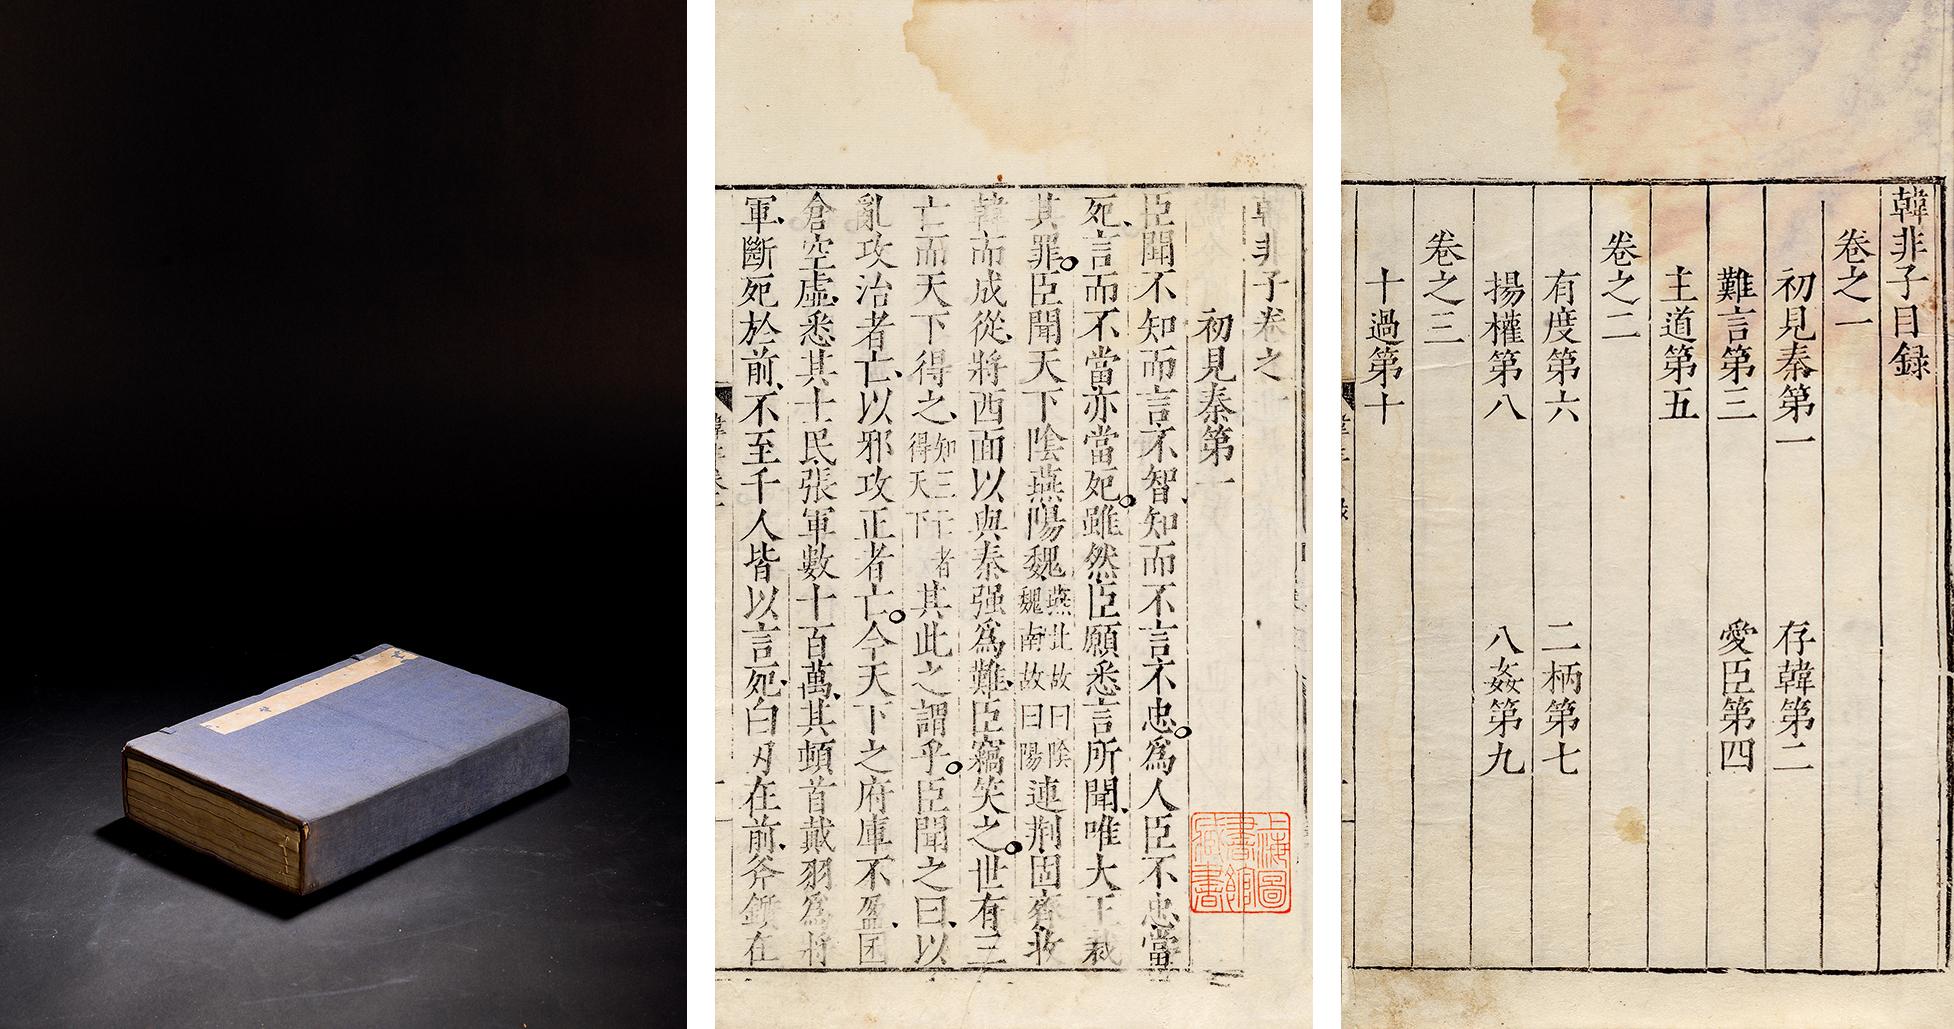 韓非子卷之
初見秦第一
臣聞不知而言不智知而不言不忠。爲人臣不忠當
死、言而不當亦當死。雖然臣願悉言所聞、唯大王裁
其罪。臣聞天下陰燕陽魏燕北故曰陰魏南故曰陽連荆固齊收
韓而成從、將西面以與秦强爲難、臣竊笑之。世有三
亡而天下得之、知三亡者得天下其此之謂乎。臣聞之曰、以
亂攻治者亡、以邪攻正者亡。今天下之府庫不盈、囷
倉空虛、悉其士民張軍數十百萬、其頓首戴羽爲將
軍、斷死於前、不至千人皆以言死、白刃在前、斧鑕在
上海圖書館藏書
韓非子目録
卷之一
初見秦第一 存韓第二
難言第三 愛臣第四
主道第五
卷之二
有度第六 二柄第七
揚權第八 八姦第九
卷之三
十過第十